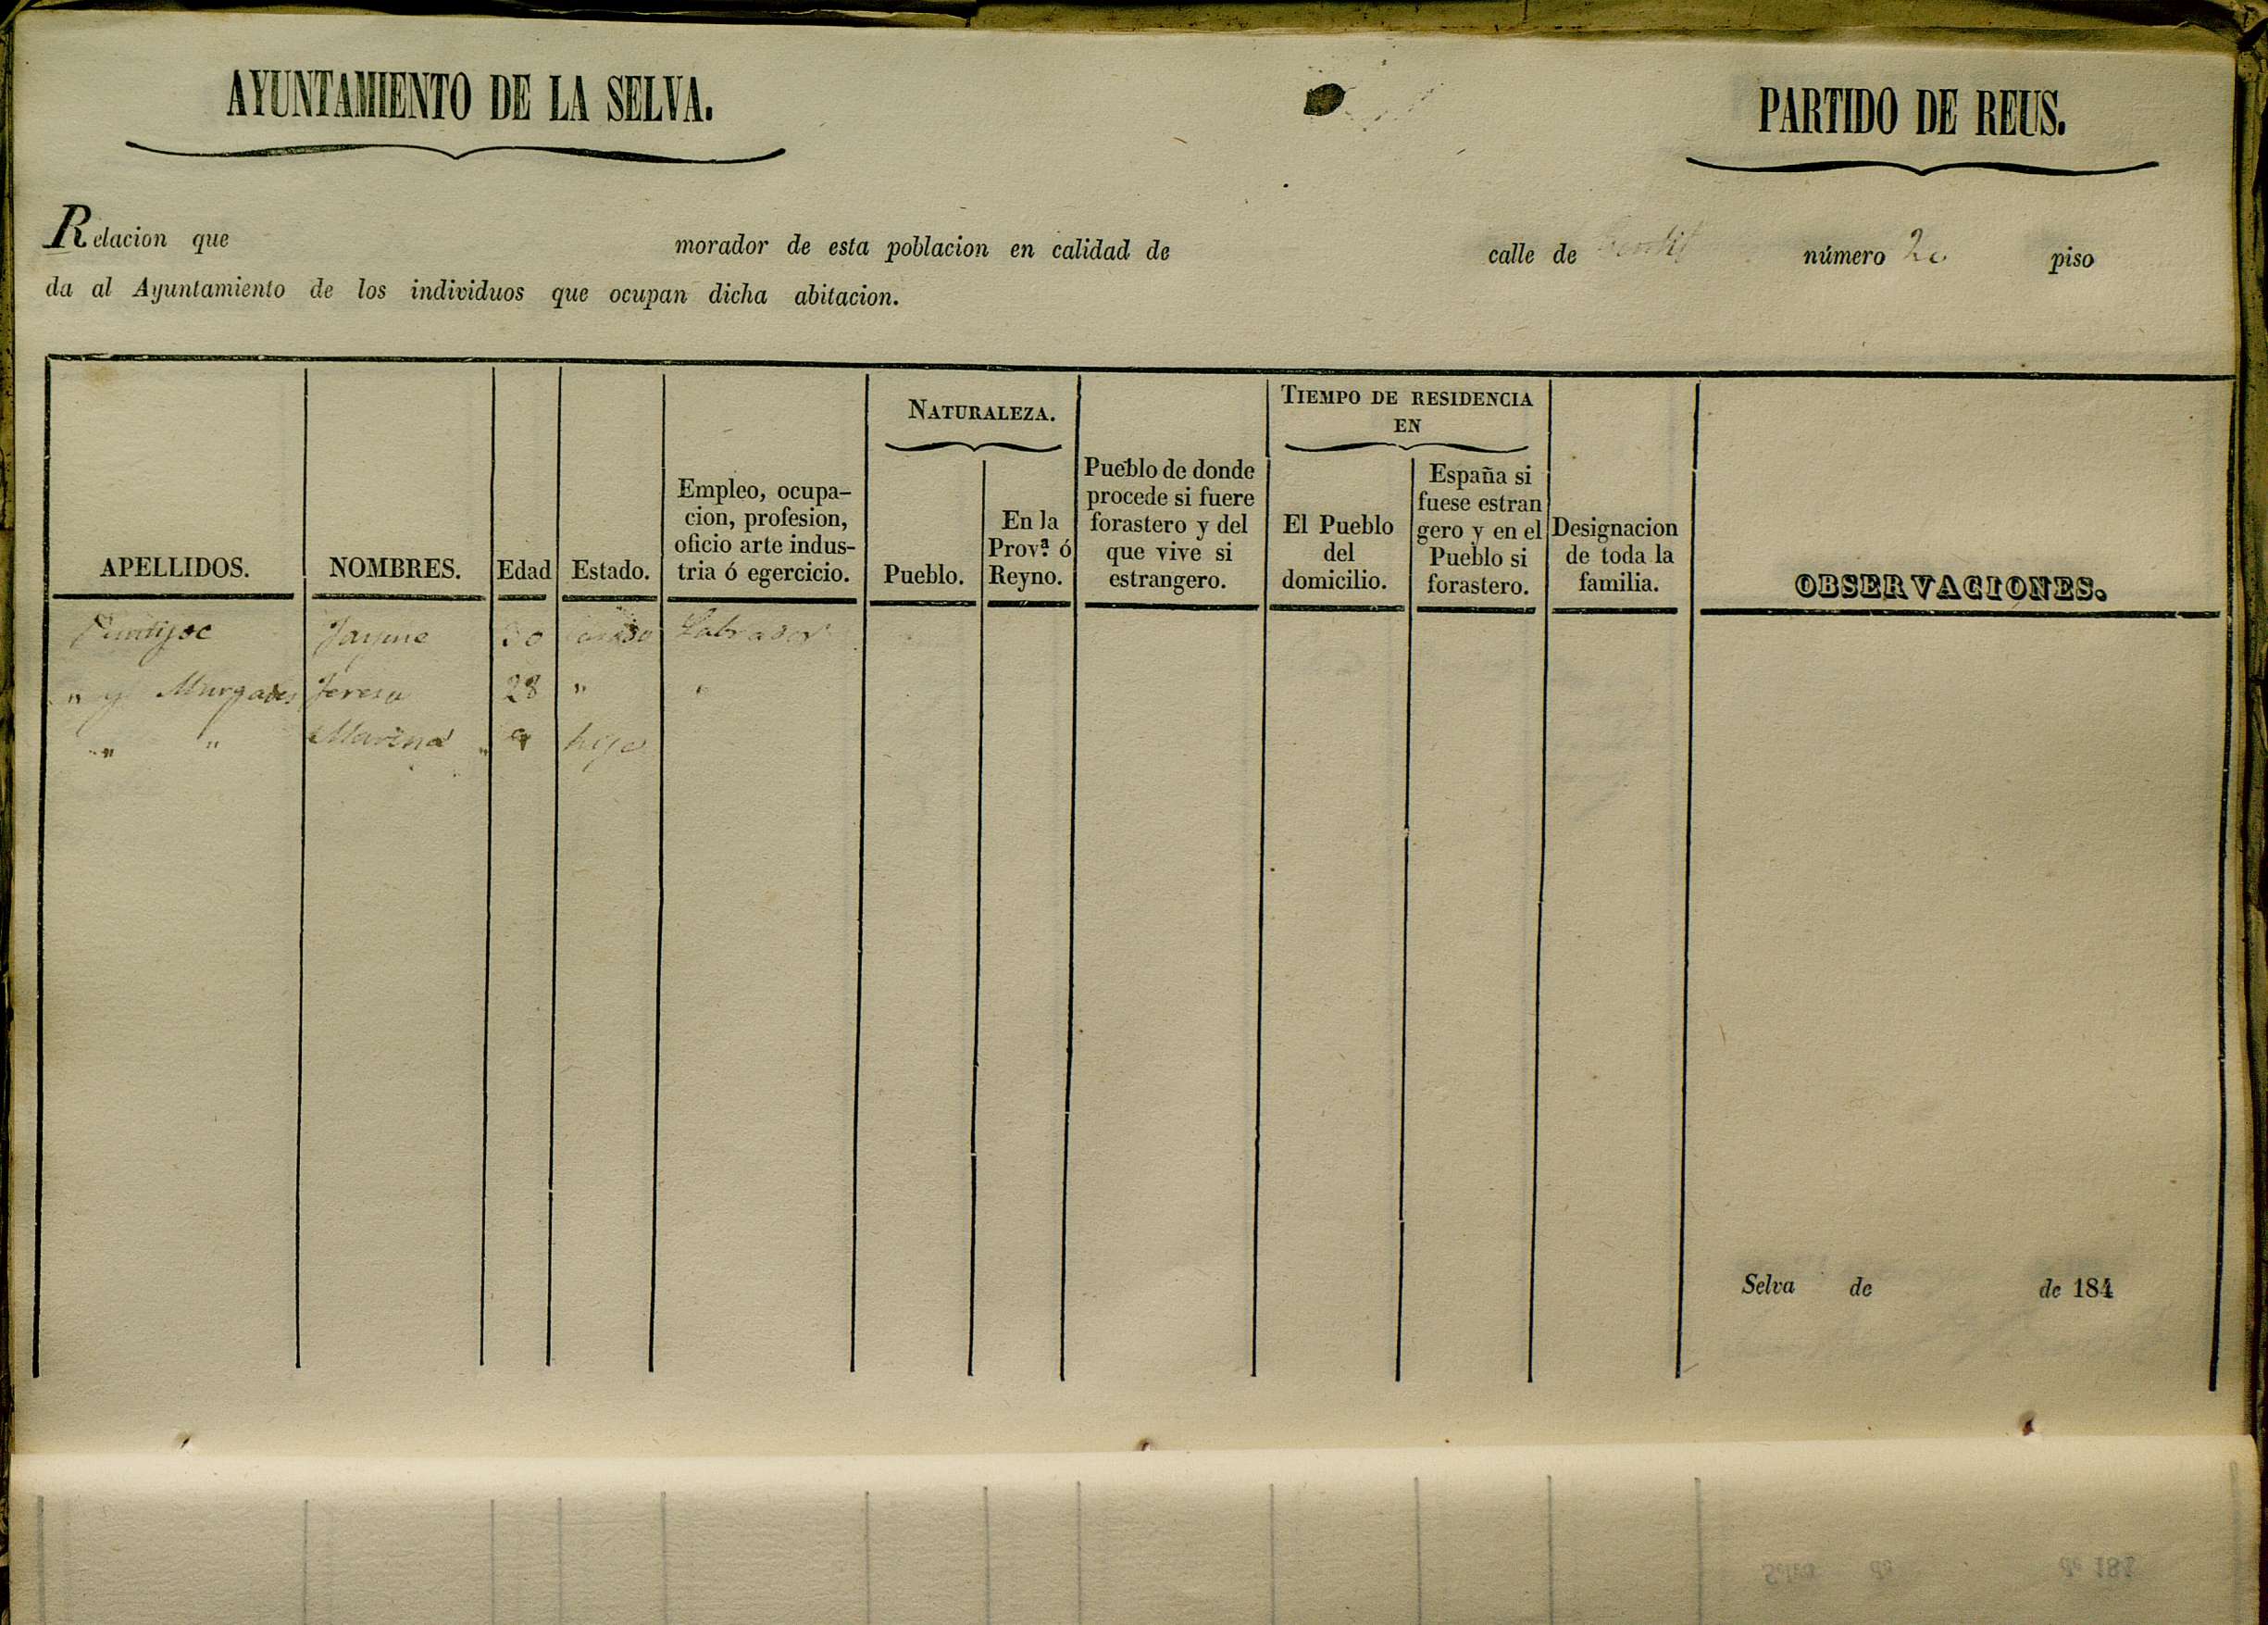 AYUNTAMIENTO DE LA SELVA.
PARTIDO DE REUS.
Relacion que morador de esta poblacion en calidad de calle de número 20 piso
da al Ayuntamiento de los individuos que ocupan dicha abitacion.
APELLIDOS.
NOMBRES.
Edad
Estado.
Empleo, ocupa-
cion, profesion,
oficio arte indus-
tria ó egercicio.
NATURALEZA.
Pueblo.
En la
Prov.ª ó
Reyno.
Pueblo de donde
procede si fuere
forastero y del
que vive si
estrangero.
TIEMPO DE RESIDENCIA
EN
El Pueblo
del
domicilio.
España si
fuese estran
gero y en el
Pueblo si
forastero.
Designacion
de toda la
familia.
OBSERVACIONES.
Jayme 30 Casado Labrador
" y Murgades Teresa 28 " "
" " " hija
Selva de de 184